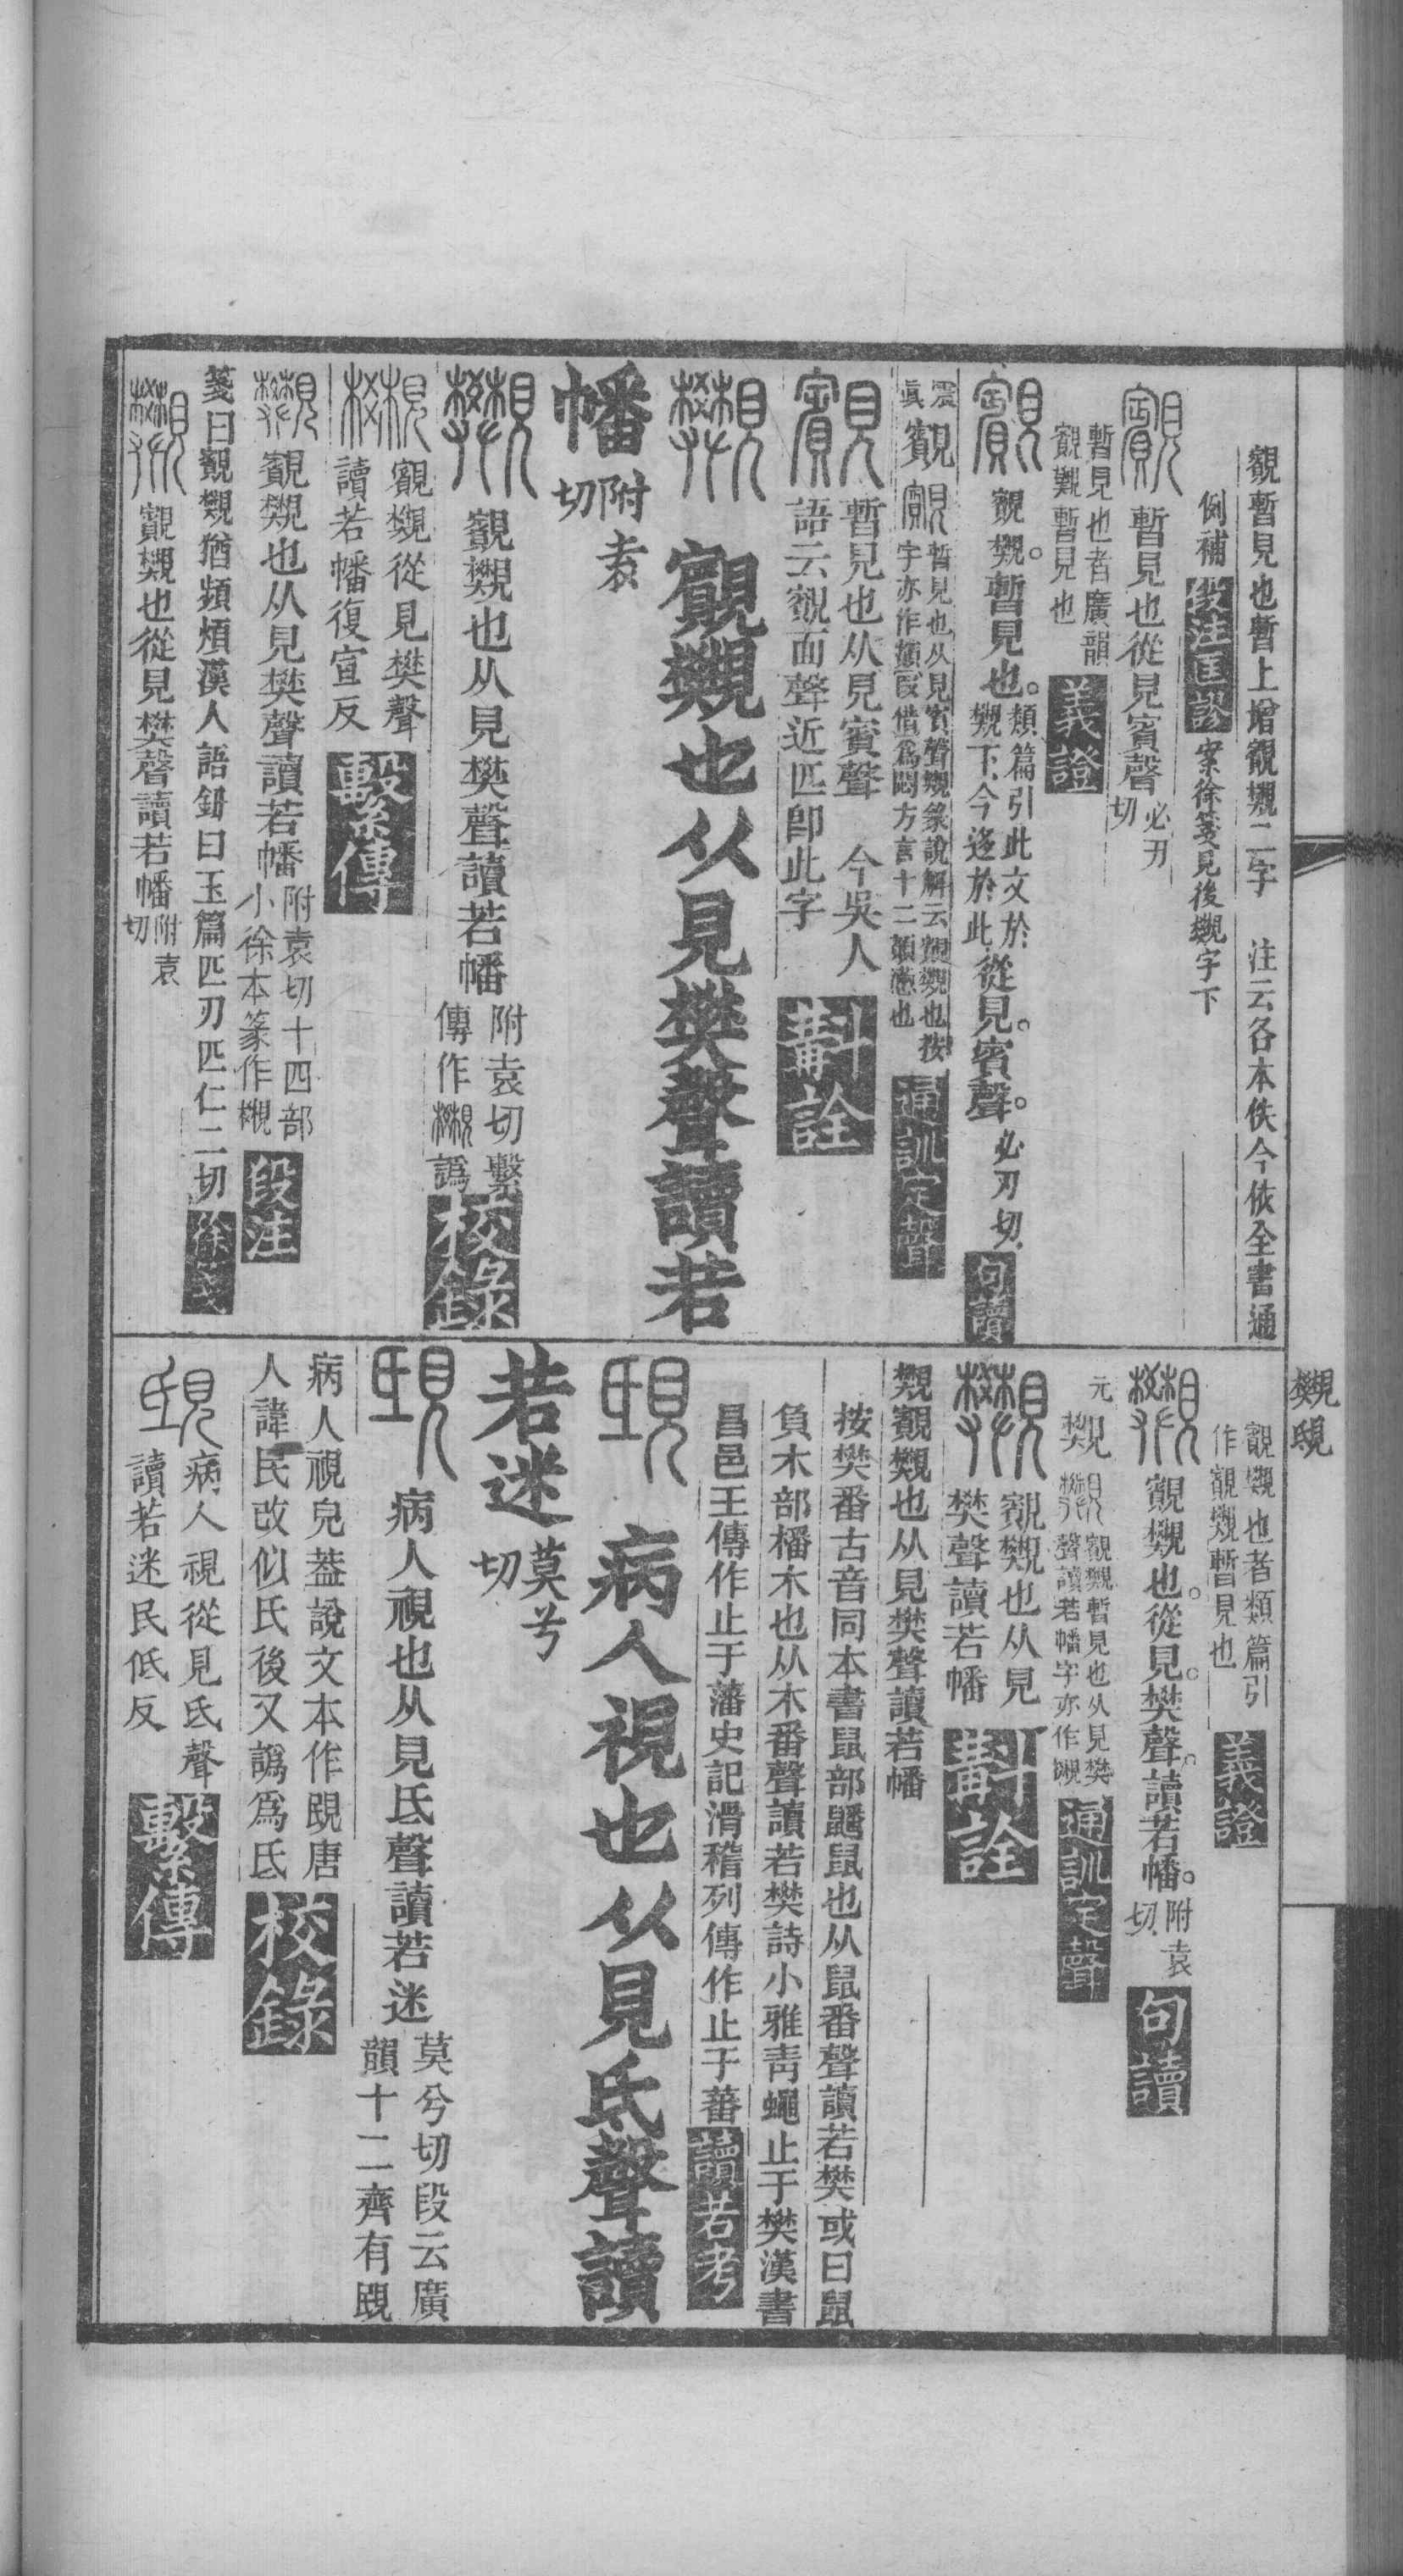 覰暫見也暫上增覰䙣二字 注云各本佚今依全書通
例補 段注匡謬 案徐箋見後䙣字下
暫見也從見賓聲 必刃切
暫見也者廣韻覰䙣暫見也 義證
覰䙣暫見也 類篇引此文於䙣下今迻於此 從見賓聲 必刃切 句讀
震眞 覰 暫見也从見賓聲䙣篆說解云覰䙣也按字亦作𩕝叚借爲悶方言十二𩕝懣也 通訓定聲
暫見也从見賓聲 今吳人
語云覰面聲近匹卽此字 斠詮
覰䙣也从見樊聲讀若
幡 附袁切
覰䙣也从見樊聲讀若幡 附袁切繫傳作䙣譌 校錄
覰䙣從見樊聲
讀若幡復宣反 繫傳
覰䙣也从見樊聲讀若幡 附袁切十四部小徐本篆作䙣 段注
箋曰覰䙣猶頻煩漢人語鈕曰玉篇匹刃匹仁二切 徐箋
覰䙣也從見樊聲讀若幡 附袁切
䙣䚅
覰䙣也者類篇引作覰䙣暫見也 義證
覰䙣也從見樊聲讀若幡 附袁切 句讀
元 䙣 覰䙣暫見也从見樊聲讀若幡字亦作䙣 通訓定聲
覰䙣也从見
樊聲讀若幡 斠詮
䙣覰䙣也从見樊聲讀若幡
按樊番古音同本書鼠部鼶鼠也从鼠番聲讀若樊或曰鼠
負木部橎木也从木番聲讀若樊詩小雅靑蠅止于樊漢書
昌邑王傳作止于藩史記滑稽列傳作止于蕃 讀若考
病人視也从見氐聲讀
若迷 莫兮切
病人視也从見氐聲讀若迷 莫兮切段云廣韻十二齊有䚅
病人視皃葢說文本作䚅唐
人諱民改似氏後又譌爲氐 校錄
病人視從見氐聲
讀若迷民低反 繫傳